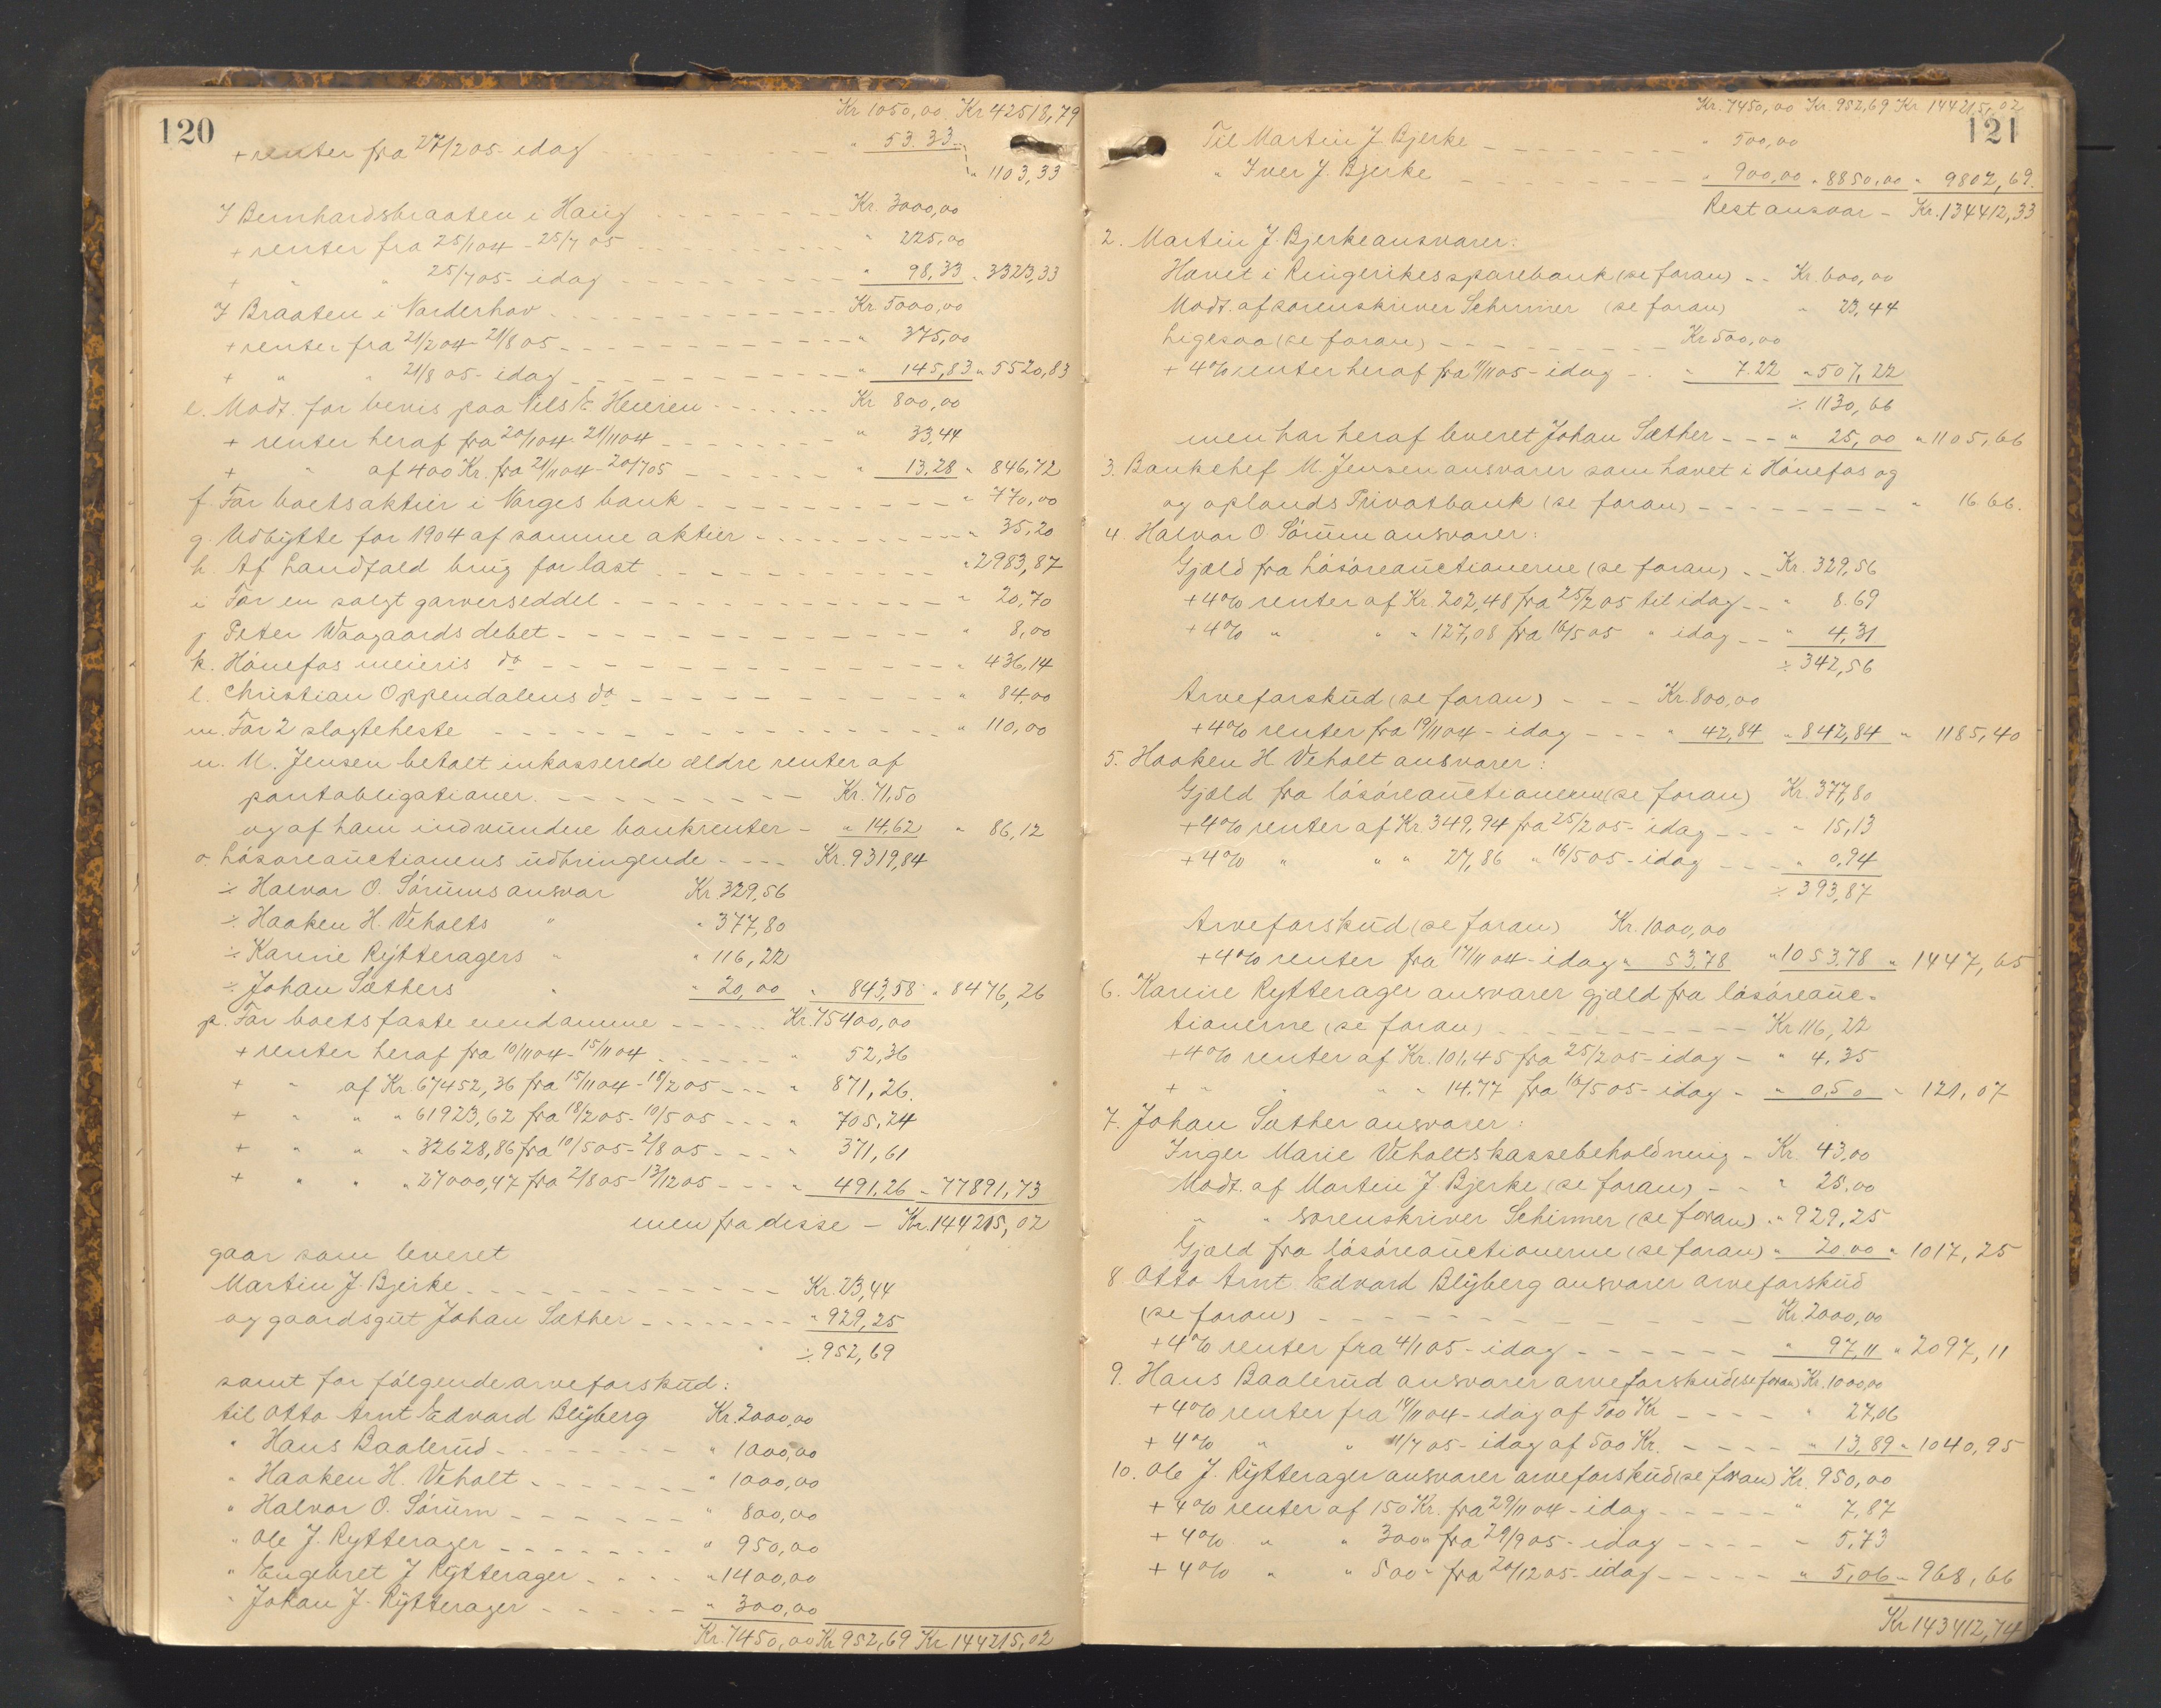 120
Kr 1050,00 Kr 42518,79
+ renter fra 27/2 05 - idag - - - " 53.33
" 1103,33
I Bernhardsbraaten i Haug - - - Kr. 3000,00
+ renter fra 25/1 04 - 25/7 05 - - - " 225,00
+ " " 25/7 05 - idag - - - " 98,33 " 3323,33
I Braaten i Norderhov - - - Kr 5000,00
+ renter fra 21/2 04 - 21/8 05 - - - " 375,00
+ " " 21/8 05 - idag - - - " 145,83 " 5520,83
e. Modt. for bevis paa Nils E. Heieren - - - Kr 800,00
+ renter heraf fra 20/1 04 - 21/11 04 - - - " 33,44
+ " af 400 Kr. fra 21/11 04 - 20/7 05 - - - " 13,28 " 846,72
f. For boets aktier i Norges bank - - - " 770,00
g. Udbytte for 1904 af samme aktier - - - " 35,20
h. Af Landfald brug for last - - - " 2983,87
i For en solgt garverseddel - - - " 20,70
j Peter Waagaards debet - - - " 8,00
k. Hønefos meieris do - - - " 436,14
l. Christian Oppendalens do - - - " 84,00
m. For 2 slagteheste - - - " 110,00
n. M. Jensen betalt inkasserede ældre renter af
pantobligationer. - - - Kr. 71,50
og af ham indvundne bankrenter - " 14,62 " 86,12
o. Løsøreauctionens udbringende - - - Kr. 9319,84
÷ Halvor O. Sørums ansvar Kr. 329,56
÷ Haaken H. Veholts " " 377,80
÷ Karine Rytteragers " " 116,22
÷ Johan Sæthers " " 20,00 " 843,58 " 8476,26
p. For boets faste eiendomme - - - Kr. 75400,00
+ renter heraf fra 10/11 04 - 15/11 04 - - - " 52,36
+ " af Kr. 67452,36 fra 15/11 04 - 18/2 05 - - - " 871,26.
+ " " " 61923,62 fra 18/2 05 - 10/5 05 - - - " 705,24
+ " " " 32628,86 fra 10/5 05 - 2/8 05 - - - " 371,61
+ " " " 27000,47 fra 2/8 05 - 13/12 05 - - - " 491,26 " 77891,73
men fra disse - Kr. 144215,02
gaar som leveret
Martin J. Bjerke - - - Kr. 23,44
og gaardsgut Johan Sæther - - - " 929,25
÷ 952,69
samt for følgende arveforskud:
til Otto Arnt Edvard Blyberg Kr. 2000,00
" Hans Baalerud - - - " 1000,00
" Haaken H. Veholt - - - " 1000,00
" Halvor O. Sørum - - - " 800,00
" Ole J. Rytterager - - - " 950,00
" Engebret J Rytterager - - - " 1400,00
" Johan J. Rytterager - - - " 300,00
Kr. 7450,00 Kr 952,69 Kr 144215,02
121
Kr. 7450,00 Kr. 952,69 Kr 144215,02
Til Martin J. Bjerke - - - " 500,00
" Iver J. Bjerke - - - " 900,00 " 8850,00 " 9802,69.
Rest ansvar - Kr. 134412,33
2. Martin J. Bjerke ansvarer:
Hævet i Ringerikes sparebank (se foran) - - Kr. 600,00
Modt. af sorenskriver Schirmer (se foran) " 23,44
Ligesaa (se foran) - - - Kr 500,00
+ 4% renter heraf fra 11/11 05 - idag - - " 7.22 " 507,22
÷ 1130,66
men har heraf leveret Johan Sæther - - - " 25,00 " 1105,66
3. Bankchef M. Jensen ansvarer som hævet i Hønefos og
og oplands Privatbank (se foran) - - - " 16 66.
4. Halvor O. Sørum ansvarer:
Gjæld fra Løsøreauctionerne (se foran) - - Kr. 329,56
+ 4% renter af Kr. 202,48 fra 25/2 05 til idag - - " 8.69
+ 4% " " " 127,08 fra 16/5 05 " idag - - " 4,31
÷ 342,56
Arveforskud (se foran) - - - Kr. 800,00
+ 4% renter fra 19/11 04 - idag - - - " 42,84 " 842,84 " 1185,40
5. Haaken H Veholt ansvarer:
Gjæld fra løsøreauctionerne (se foran) Kr. 377,80
+ 4% renter af Kr. 349,94 fra 25/2 05 - idag - - - " 15,13
+ 4% " " " 27,86 " 16/5 05 - idag - - - " 0,94
÷ 393,87
Arveforskud (se foran) Kr. 1000,00
+ 4% renter fra 17/11 04 - idag " 53.78 " 1053.78 " 1447,65
6. Karine Rytterager ansvarer gjæld fra løsøreauc-
tionerne (se foran) - - - Kr 116,22
+ 4% renter af Kr. 101,45 fra 25/2 05 - idag - " 4,35
+ " " " " 14.77 fra 16/5 05 - idag - " 0,50 " 121,07
7. Johan Sæther ansvarer:
Inger Marie Veholts kassebeholdning - Kr. 43,00
Modt. af Martin J. Bjerke (se foran) - - " 25,00
" " sorenskriver Schirmer (se foran) - " 929,25
Gjæld fra løsøreauctionerne (se foran) " 20.00 " 1017,25
8 Otto Arnt Edvard Blyberg ansvarer arveforskud
(se foran) - - - Kr. 2000,00
+ 4% renter fra 4/1 05 - idag - - - " 97,11 " 2097,11
9. Hans Baalerud ansvarer arveforskud (se foran) Kr. 1000,00
+ 4% renter fra 14/11 04 - idag af 500 Kr - - - " 27,06
+ 4% " " 11/7 05 - idag af 500 Kr. - - - " 13,89 " 1040,95
10. Ole J. Rytterager ansvarer arveforskud (se foran) Kr. 950,00
+ 4% renter af 150 Kr. fra 29/11 04 - idag - - - " 7,87
+ 4% " " 300 " fra 29/9 05 - idag - - - " 5,73
+ 4% " " 500 " fra 20/12 05 - idag - - - " 5,06 " 968,66
Kr 143412,74